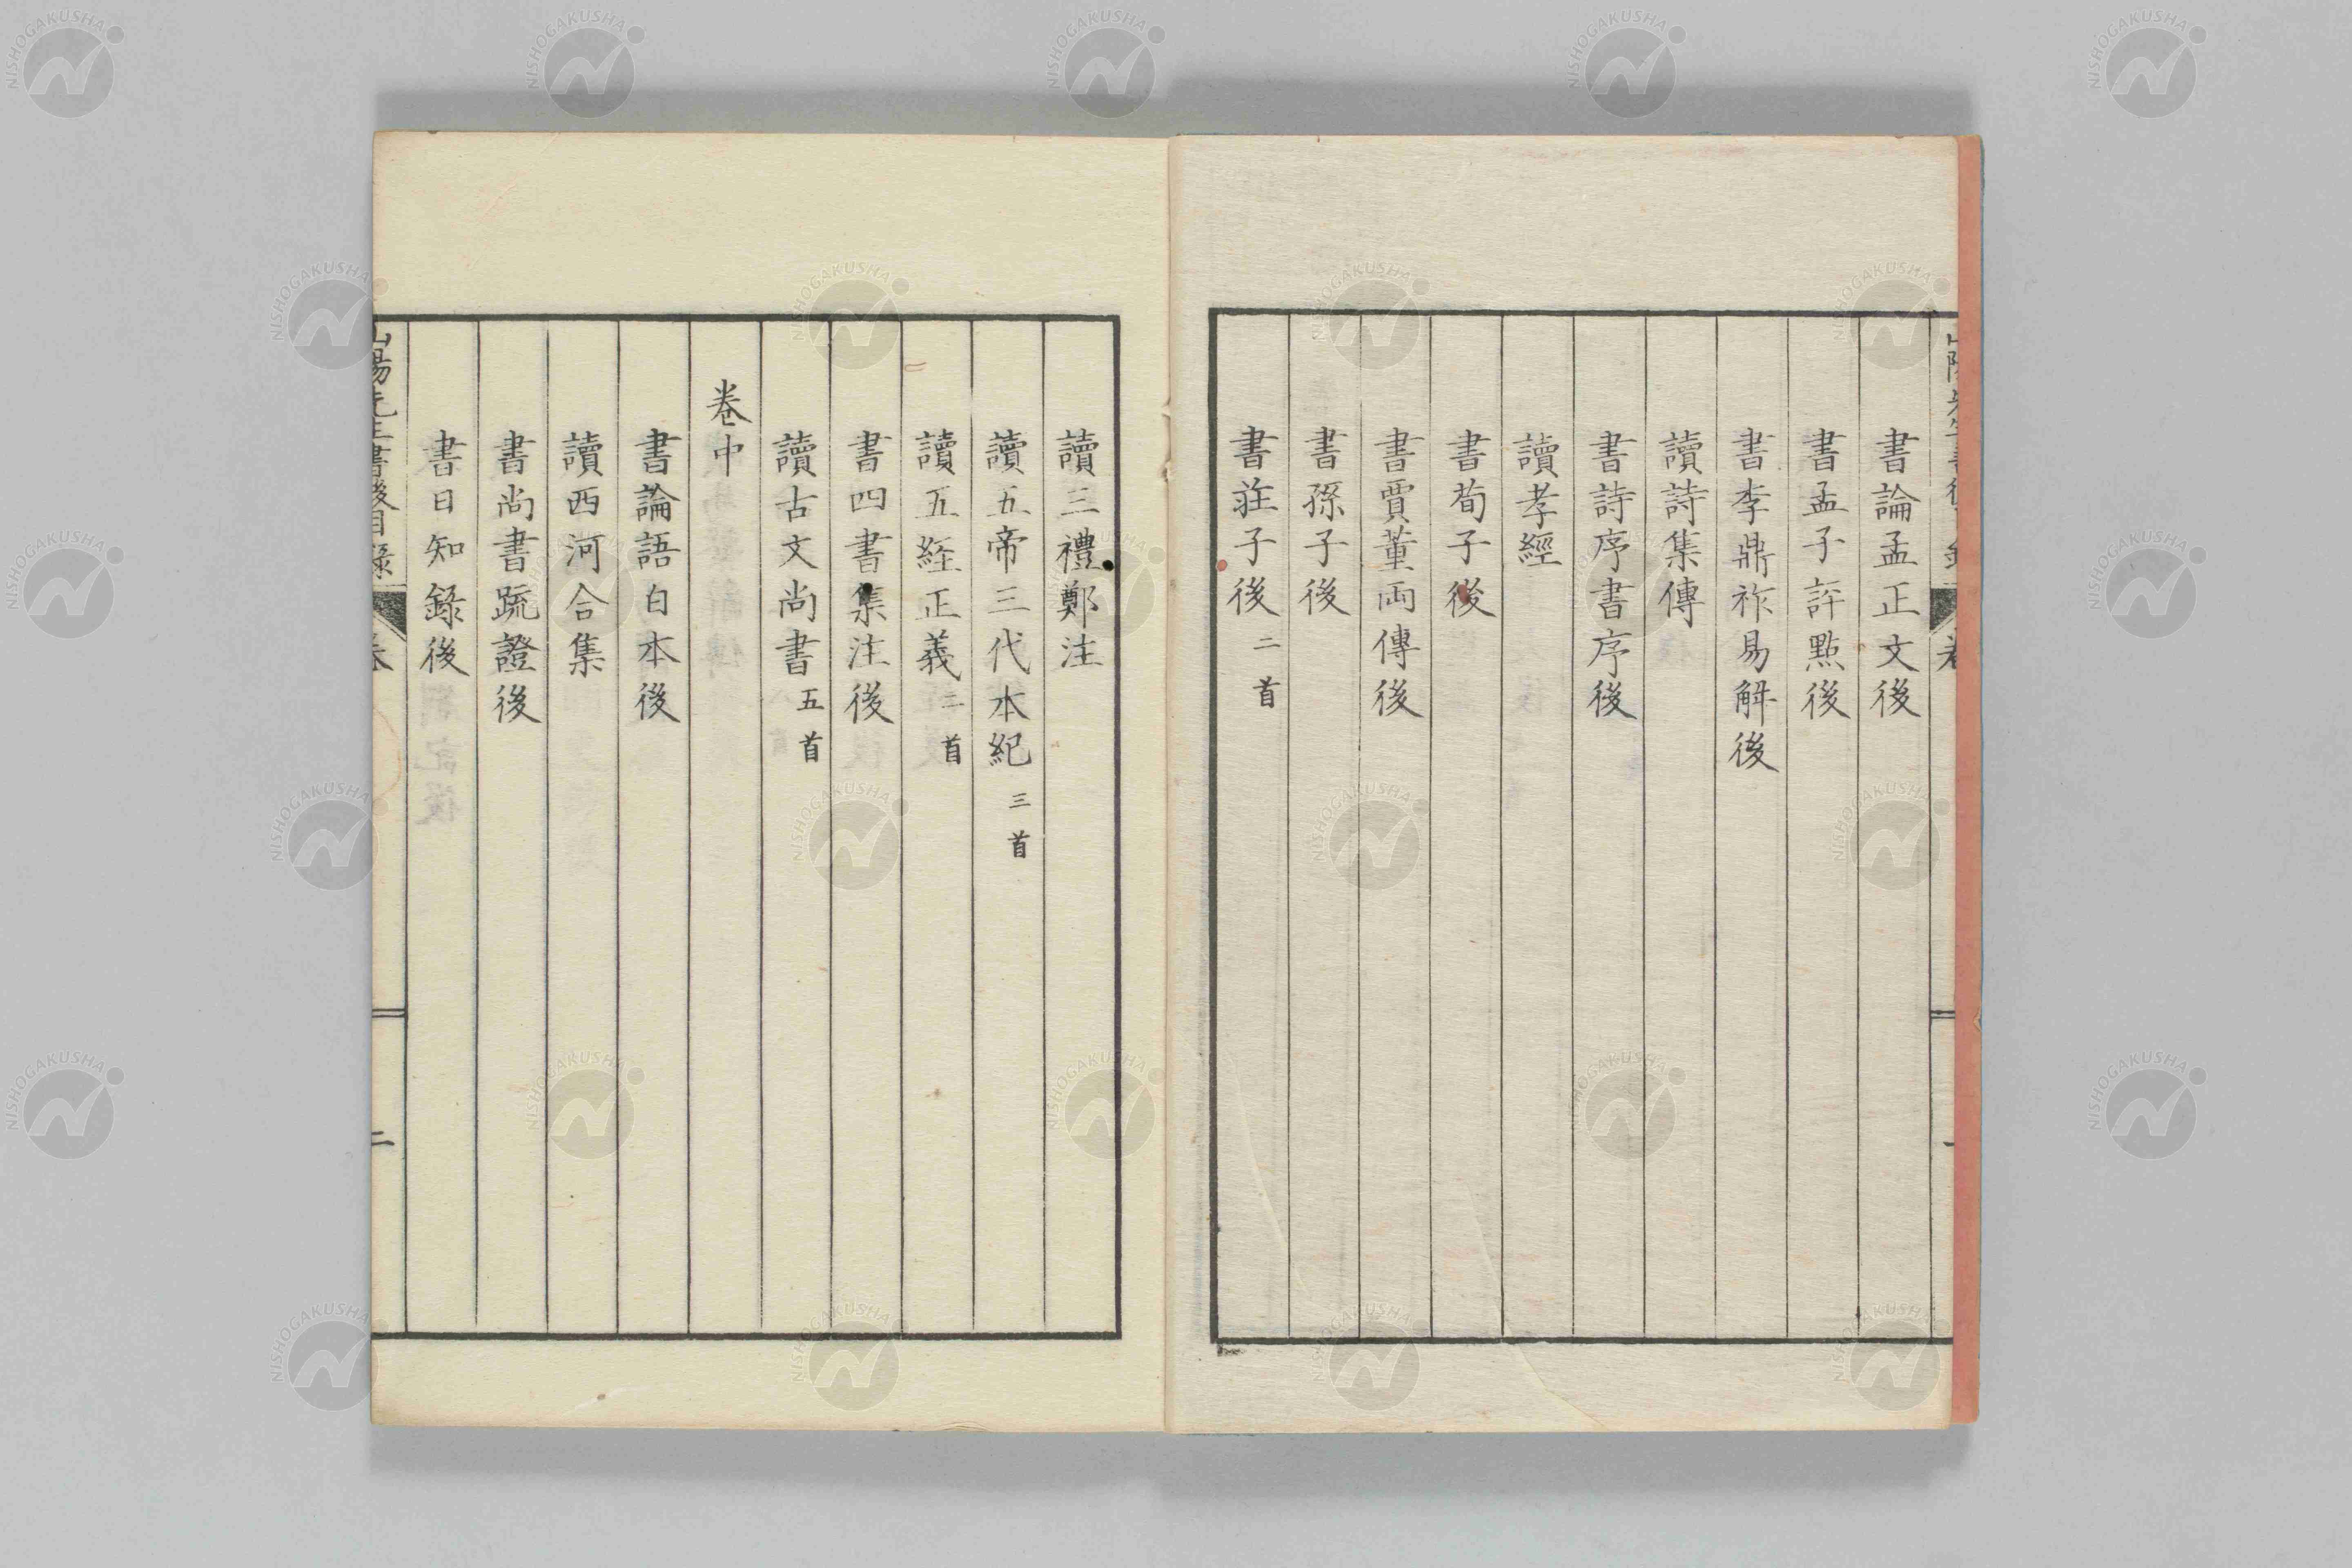 書論孟正文後
書孟子評點後
書李鼎祚易解後
讀詩集傳
書詩序書序後
讀孝經
書荀子後
書賈董両傳後
書孫子後
書莊子後 二首
讀三禮鄭注
讀五帝三代本紀 三首
讀五経正義 二首
書四書集注後
讀古文尚書 五首
卷中
書論語白本後
讀西河合集
書尚書疏證後
書日知錄後
山陽先生書後目錄 卷 二
NISHOGAKUSHA